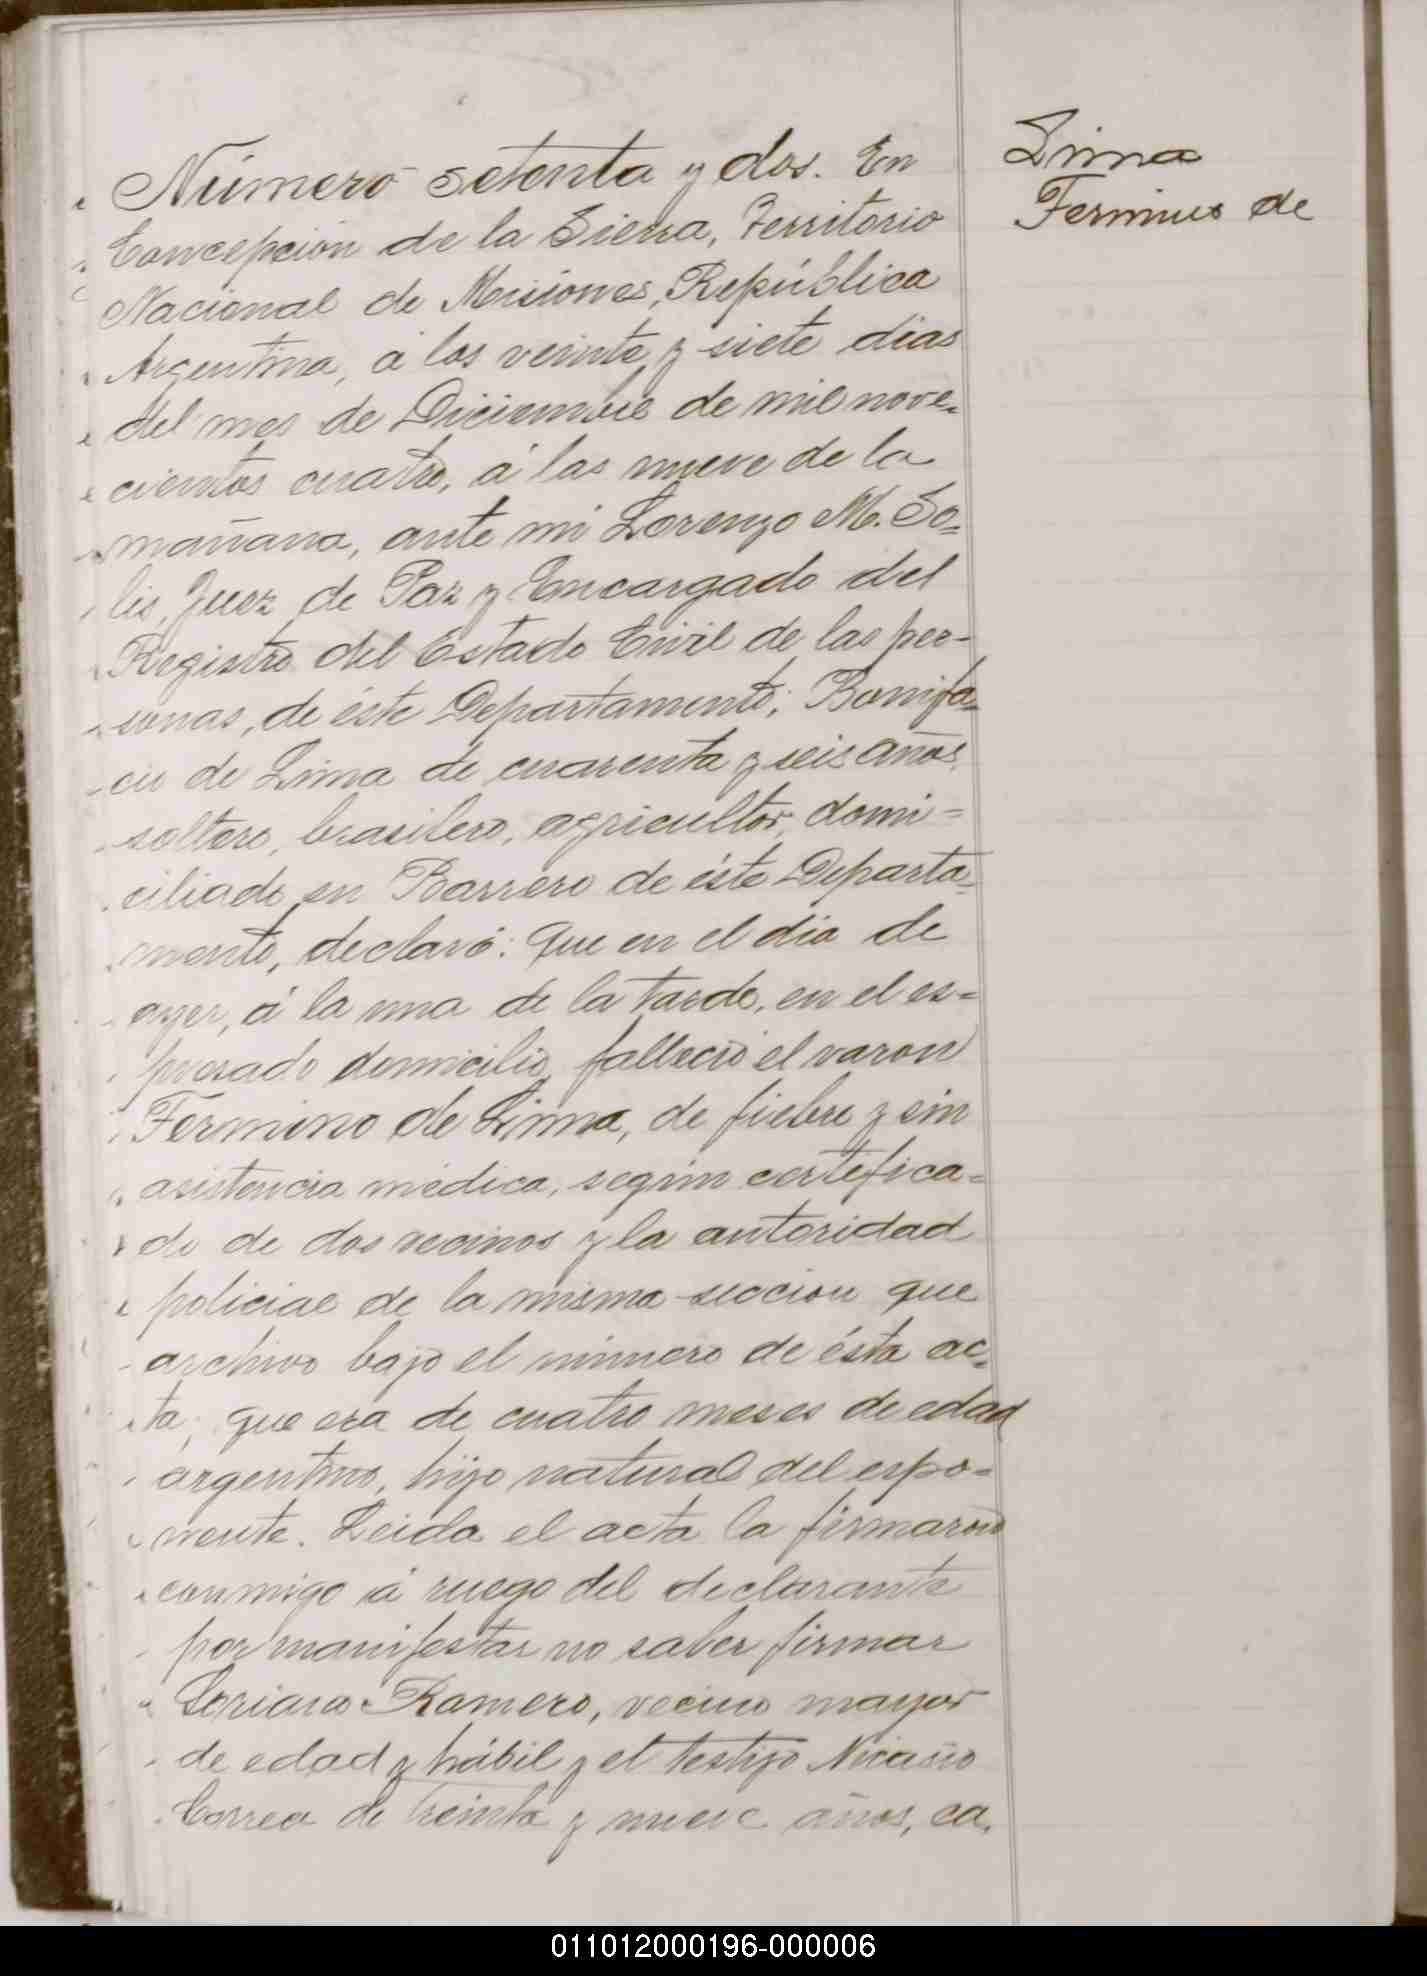 Número setenta y dos. En
Concepcion de la Sierra, Territorio
Nacional de Misiones, República
Argentina, á los veinte y siete dias
del mes de Diciembre de mil nove=
cientos cuatro, á las nueve de la
mañana, ante mi Lorenzo M. So=
lis, Juez de Paz y Encargado del
Registro del Estado Civil de las per-
sonas, de éste Departamento; Bonifa=
cio de Lima de cuarenta y seis años,
soltero, brasilero, agricultor, domi=
ciliado en Barrero de éste Departa=
mento, declaró: Que en el dia de
ayer, á la una de la tarde, en el es=
presado domicilio, falleció el varon
Fermino de Lima, de fiebre y sin
asistencia médica, según certifica=
do de dos vecinos y la autoridad
policial de la misma seccion que
archivo bajo el número de ésta ac=
ta; que era de cuatro meses de edad
argentino, hijo natural del espo=
nente. Leida el acta la firmaron
conmigo á ruego del declarante
por manifestar no saber firmar
Ramero, vecino mayor
de edad y hábil y el testigo
Correa de treinta y nueve años, ca=
Lima
Fermino de
011012000196-000006